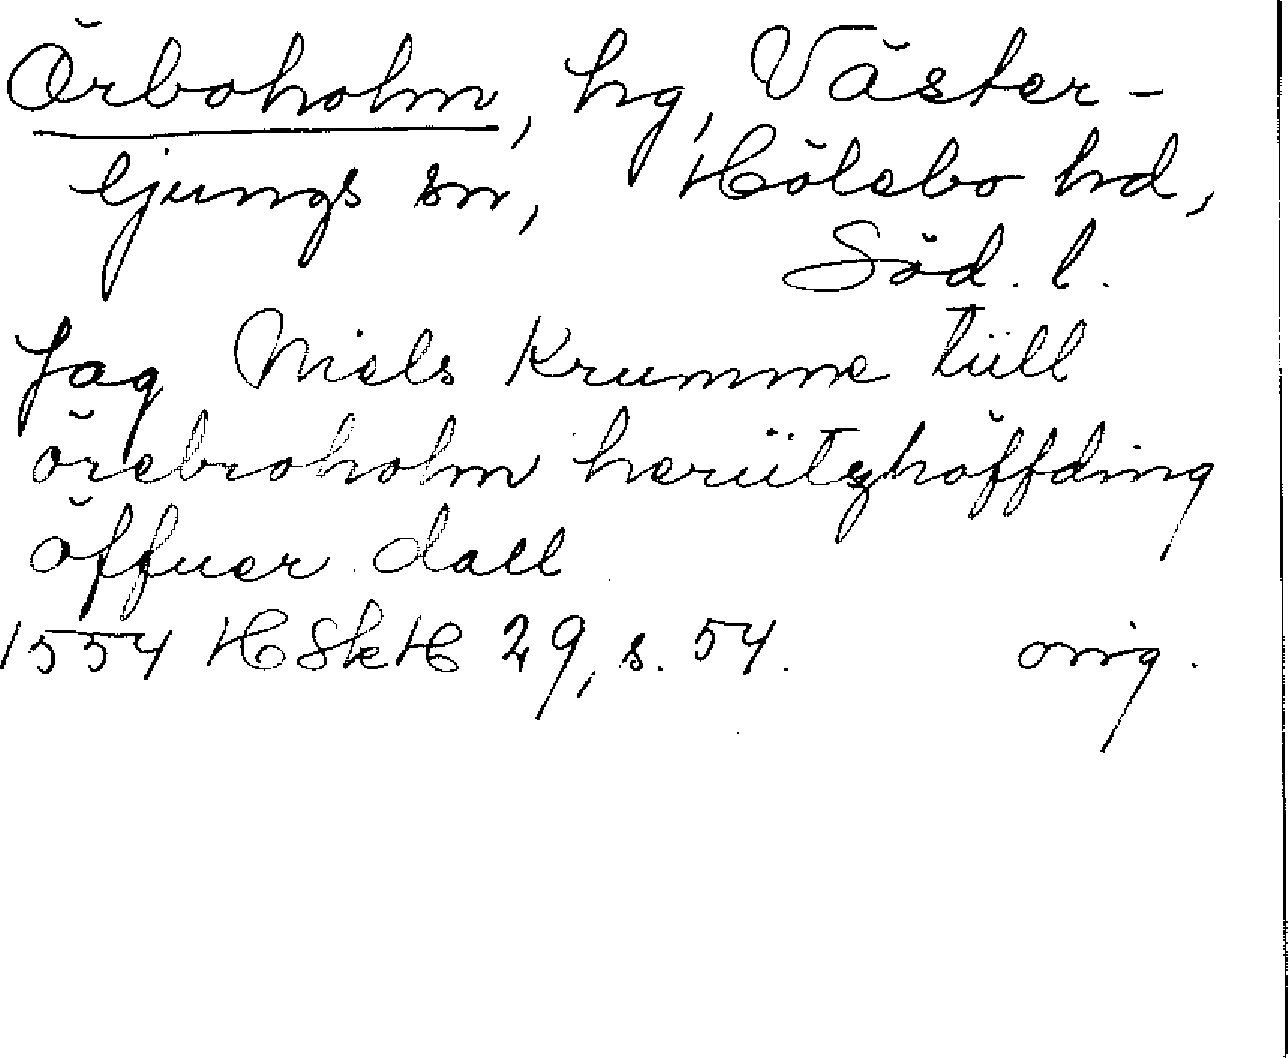 Örboholm, hg, Väster-
ljungs sn, Hölebo hd,
Söd. l.
Jag Niels Krumme tüll
örebroholm herütz höffding
öffuer dall
1554 HSkH 29, s. 54. orig.